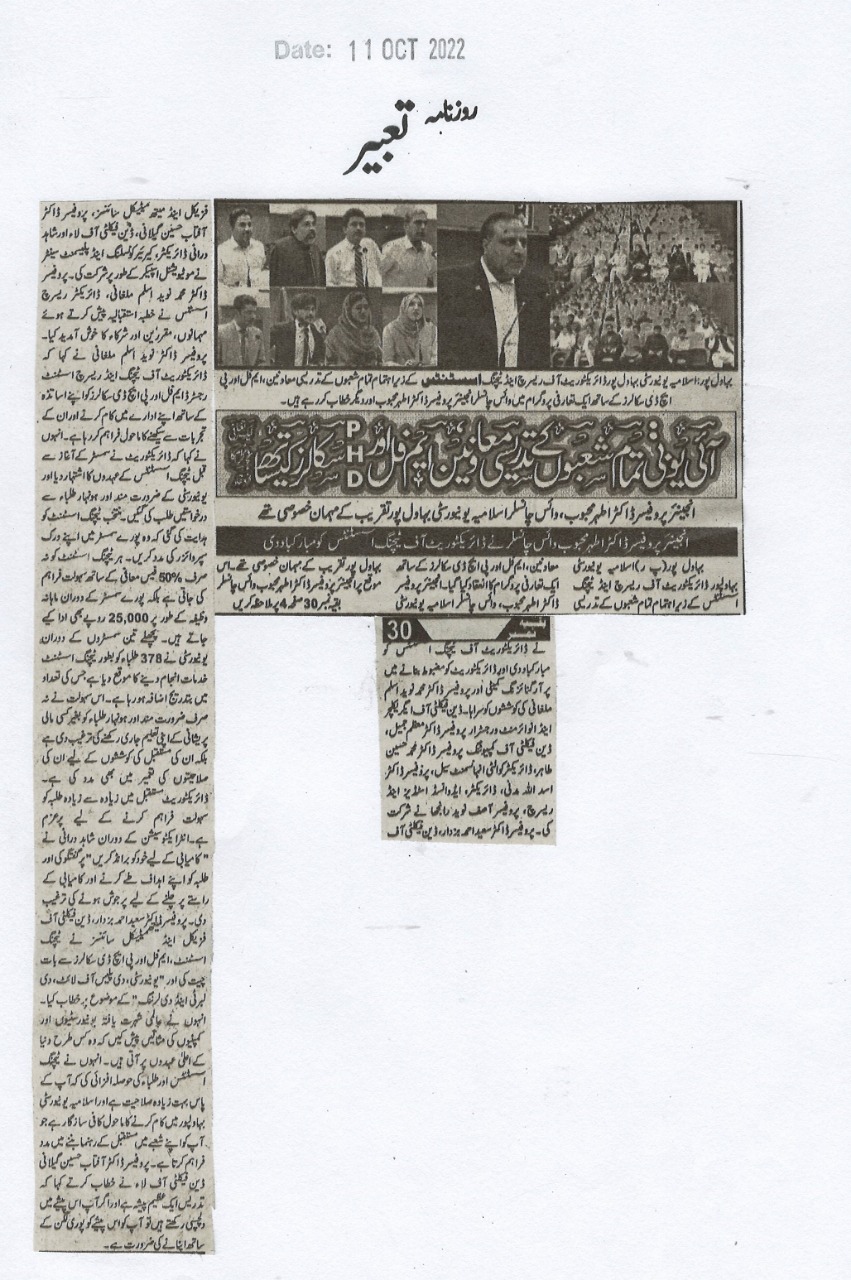 Date: 11 OCT 2022
روزنامہ تعبیر
بہاول پور: اسلامیہ یونیورسٹی بہاول پور ڈائریکٹوریٹ آف ریسرچ اینڈ ٹیچنگ اسسٹنٹس کے زیر اہتمام تمام شعبوں کے تدریسی معاونین، ایم فل اور پی
ایچ ڈی سکالرز کے ساتھ ایک تعارفی پروگرام میں وائس چانسلر انجینئر پروفیسر ڈاکٹر اطہر محبوب اور دیگر خطاب کر رہے ہیں۔
آئی یو بی: تمام شعبوں کے تدریسی معاونین ایم فل اور PHD سکالرز کیساتھ
انجینئر پروفیسر ڈاکٹر اطہر محبوب، وائس چانسلر اسلامیہ یونیورسٹی بہاول پور تقریب کے مہمان خصوصی تھے
انجینئر پروفیسر ڈاکٹر اطہر محبوب وائس چانسلر نے ڈائریکٹوریٹ آف ٹیچنگ اسسٹنٹس کو مبارکباد دی
بہاول پور (پ ر) اسلامیہ یونیورسٹی
بہاولپور ڈائریکٹوریٹ آف ریسرچ اینڈ ٹیچنگ
اسسٹنٹس کے زیر اہتمام تمام شعبوں کے تدریسی
معاونین، ایم فل اور پی ایچ ڈی سکالرز کے ساتھ
ایک تعارفی پروگرام کا انعقاد کیا گیا۔ انجینئر پروفیسر
ڈاکٹر اطہر محبوب، وائس چانسلر اسلامیہ یونیورسٹی
بہاول پور تقریب کے مہمان خصوصی تھے۔ اس
موقع پر انجینئر پروفیسر ڈاکٹر اطہر محبوب وائس چانسلر
بقیہ نمبر 30 صفحہ 4 پر ملاحظہ کریں
بقیہ نمبر 30
نے ڈائریکٹوریٹ آف ٹیچنگ اسسٹنٹس کو
مبارکباد دی اور ڈائریکٹوریٹ کو مضبوط بنانے میں
پر آرگنائزنگ کمیٹی اور پروفیسر ڈاکٹر محمد نوید اسلم
ملغانی کی کوششوں کو سراہا۔ ڈین فیکلٹی آف ایگریکلچر
اینڈ انوائرمنٹ و رجسٹرار پروفیسر ڈاکٹر معظم جمیل،
ڈین فیکلٹی آف کمپیوٹنگ پروفیسر ڈاکٹر محمد حسین
طاہر، ڈائریکٹر کوالٹی انہانسمنٹ سیل، پروفیسر ڈاکٹر
اسد اللہ مدنی، ڈائریکٹر، ایڈوانسڈ اسٹڈیز اینڈ
ریسرچ، پروفیسر آصف نوید رانجھا نے شرکت
کی۔ پروفیسر ڈاکٹر سعید احمد بزدار، ڈین فیکلٹی آف
فزیکل اینڈ میتھ میٹیکل سائنسز، پروفیسر ڈاکٹر
آفتاب حسین گیلانی، ڈین فیکلٹی آف لاء اور شاہد
درانی ڈائریکٹر، کیریئر کونسلنگ اینڈ پلیسمنٹ سینٹر
نے موٹیویشنل اسپیکر کے طور پر شرکت کی۔ پروفیسر
ڈاکٹر محمد نوید اسلم ملغانی، ڈائریکٹر ریسرچ
اسسٹنٹس نے خطبہ استقبالیہ پیش کرتے ہوئے
مہمانوں، مقررین اور شرکاء کا خوش آمدید کیا۔
پروفیسر ڈاکٹر نوید اسلم ملغانی نے کہا کہ
ڈائریکٹوریٹ آف ٹیچنگ اینڈ ریسرچ اسسٹنٹ
رجسٹرڈ ایم فل اور پی ایچ ڈی سکالرز کو اپنے اساتذہ
کے ساتھ اپنے ادارے میں کام کرنے اور ان کے
تجربات سے سیکھنے کا ماحول فراہم کر رہا ہے۔ انہوں
نے کہا کہ ڈائریکٹوریٹ نے سمسٹر کے آغاز سے
قبل ٹیچنگ اسسٹنٹس کے عہدوں کا اشتہار دیا اور
یونیورسٹی کے ضرورت مند اور ہونہار طلباء سے
درخواستیں طلب کی گئیں۔ منتخب ٹیچنگ اسسٹنٹ کو
ہدایت کی گئی کہ وہ پورے سمسٹر میں اپنے ورک
سپروائزر کی مدد کریں۔ ہر ٹیچنگ اسسٹنٹ کو نہ
صرف 50% فیس معافی کے ساتھ سہولت فراہم
کی جاتی ہے بلکہ پورے سمسٹر کے دوران ماہانہ
وظیفہ کے طور پر 25,000 روپے بھی ادا کیے
جاتے ہیں۔ پچھلے تین سمسٹروں کے دوران
یونیورسٹی نے 378 طلباء کو بطور ٹیچنگ اسسٹنٹ
خدمات انجام دینے کا موقع دیا ہے جس کی تعداد
میں بتدریج اضافہ ہو رہا ہے۔ اس سہولت نے نہ
صرف ضرورت مند اور ہونہار طلباء کو بغیر کسی مالی
پریشانی کے اپنی تعلیم جاری رکھنے کی ترغیب دی ہے
بلکہ ان کی مستقبل کی کوششوں کے لیے ان کی
صلاحیتوں کی تعمیر میں بھی مدد کی ہے۔
ڈائریکٹوریٹ مستقبل میں زیادہ سے زیادہ طلبہ کو
سہولت فراہم کرنے کے لیے پرعزم
ہے۔ انٹرایکٹو سیشن کے دوران شاہد درانی نے
"کامیابی کے لیے خود کو برانڈ کریں" پر گفتگو کی اور
طلبہ کو اپنے اہداف طے کرنے اور کامیابی کے
راستے پر چلنے کے لیے پرجوش ہونے کی ترغیب
دی۔ پروفیسر ڈاکٹر سعید احمد بزدار، ڈین فیکلٹی آف
فزیکل اینڈ میتھمیٹیکل سائنسز نے ٹیچنگ
اسسٹنٹ، ایم فل اور پی ایچ ڈی سکالرز سے بات
چیت کی اور "یونیورسٹی، دی پلیس آف لائٹ، دی
لبرٹی اینڈ دی لرننگ" کے موضوع پر خطاب کیا۔
انہوں نے عالمی شہرت یافتہ یونیورسٹیوں اور
کمپنیوں کی مثالیں پیش کیں کہ وہ کس طرح دنیا
کے اعلیٰ عہدوں پر آتی ہیں۔ انہوں نے ٹیچنگ
اسسٹنٹس اور طلباء کی حوصلہ افزائی کی کہ آپ کے
پاس بہت زیادہ صلاحیت ہے اور اسلامیہ یونیورسٹی
بہاولپور میں کام کرنے کا ماحول کافی سازگار ہے جو
آپ کو اپنے شعبے میں مستقبل کے رہنما بننے میں مدد
فراہم کرتا ہے۔ پروفیسر ڈاکٹر آفتاب حسین گیلانی
ڈین فیکلٹی آف لاء نے خطاب کرتے کہا کہ
تدریس ایک عظیم پیشہ ہے اور اگر آپ اس پیشے میں
دلچسپی رکھتے ہیں تو آپ کو اس پیشے کو پوری لگن کے
ساتھ اپنانے کی ضرورت ہے۔